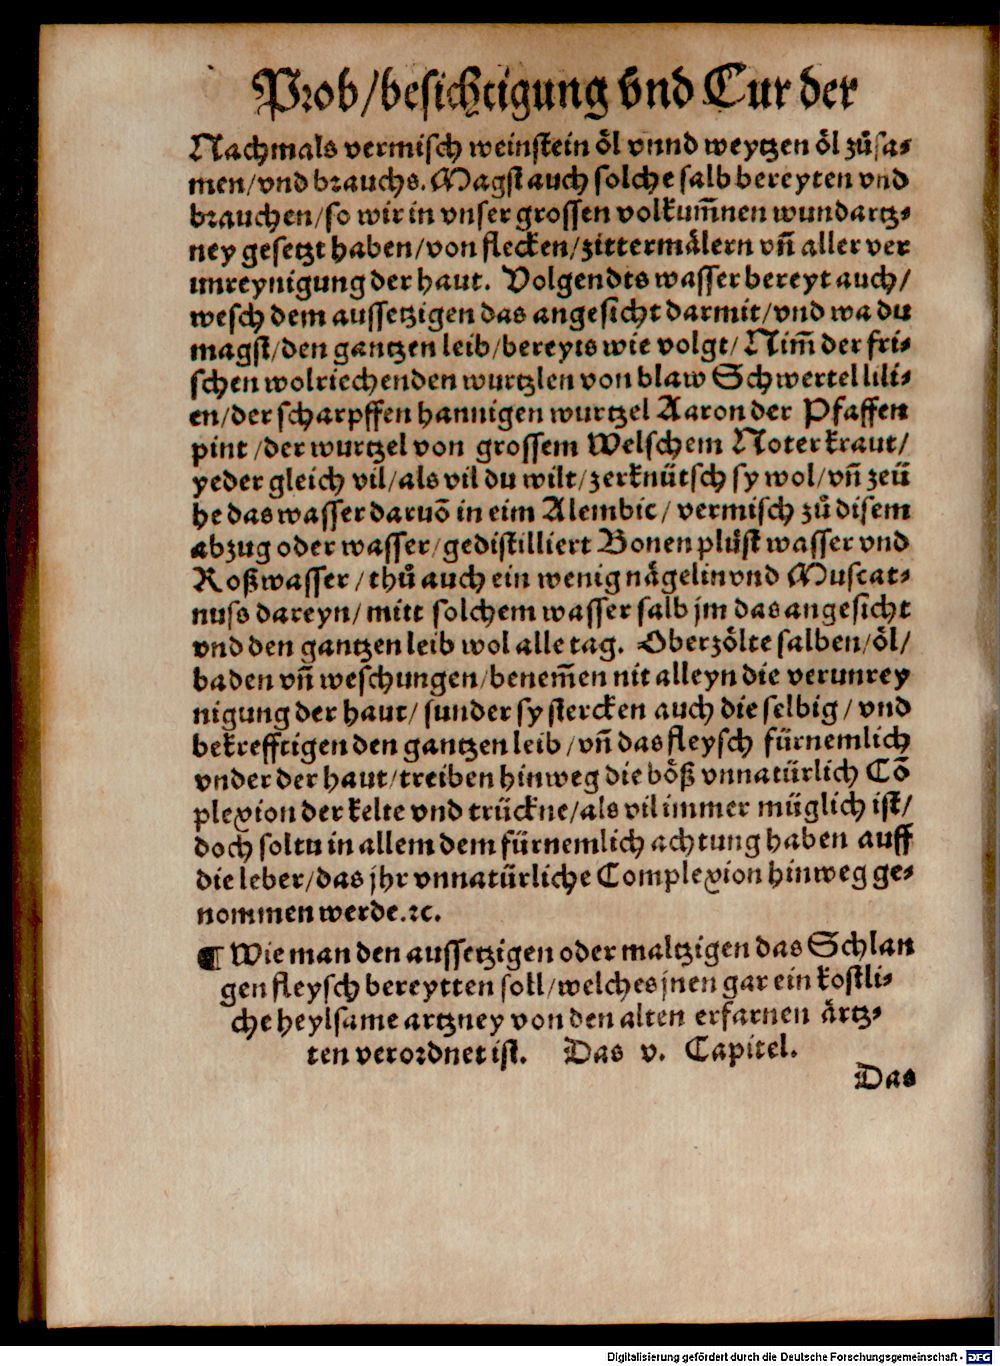 Prob/besichtigung vnd Cur der
Nachmals vermisch weinstein öl vnnd weytzen öl zůsa-
men/vnd brauchs. Magst auch solche salb bereyten vnd
brauchen/so wir in vnser grossen volkum̃nen wundartz-
ney gesetzt haben/von flecken/zittermälern vñ aller ver
unreynigung der haut. Volgendts wasser bereyt auch/
wesch dem aussetzigen das angesicht darmit/vnd wa du
magst/den gantzen leib/bereyts wie volgt/Nim̃ der fri-
schen wolriechenden wurtzlen von blaw Schwertel lili-
en/der scharpffen hannigen wurtzel Aaron der Pfaffen
pint/der wurtzel von grossem Welschem Noterkraut/
yeder gleich vil/als vil du wilt/zerknütsch sy wol/vñ zeü
he das wasser daruõ in eim Alembic/vermisch zů disem
abzug oder wasser/gedistilliert Bonen plůst wasser vnd
Roßwasser/thů auch ein wenig nägelin vnd Muscat-
nuss dareyn/mitt solchem wasser salb jm das angesicht
vnd den gantzen leib wol alle tag. Oberzölte salben/öl/
baden vñ weschungen/benem̃en nit alleyn die verunrey
nigung der haut/sunder sy stercken auch die selbig/vnd
bekrefftigen den gantzen leib/vñ das fleysch fürnemlich
vnder der haut/treiben hinweg die böß vnnatürlich Cõ
plexion der kelte vnd trückne/als vil immer müglich ist/
doch soltu in allem dem fürnemlich achtung haben auff
die leber/das jhr vnnatürliche Complexion hinweg ge-
nommen werde.ꝛc.
¶ Wie man den aussetzigen oder maltzigen das Schlan
gen fleysch bereytten soll/welches jnen gar ein kostli-
che heylsame artzney von den alten erfarnen ärtz-
ten verordnet ist. Das v. Capitel.
Das
Digitalisierung gefördert durch die Deutsche Forschungsgemeinschaft - DFG